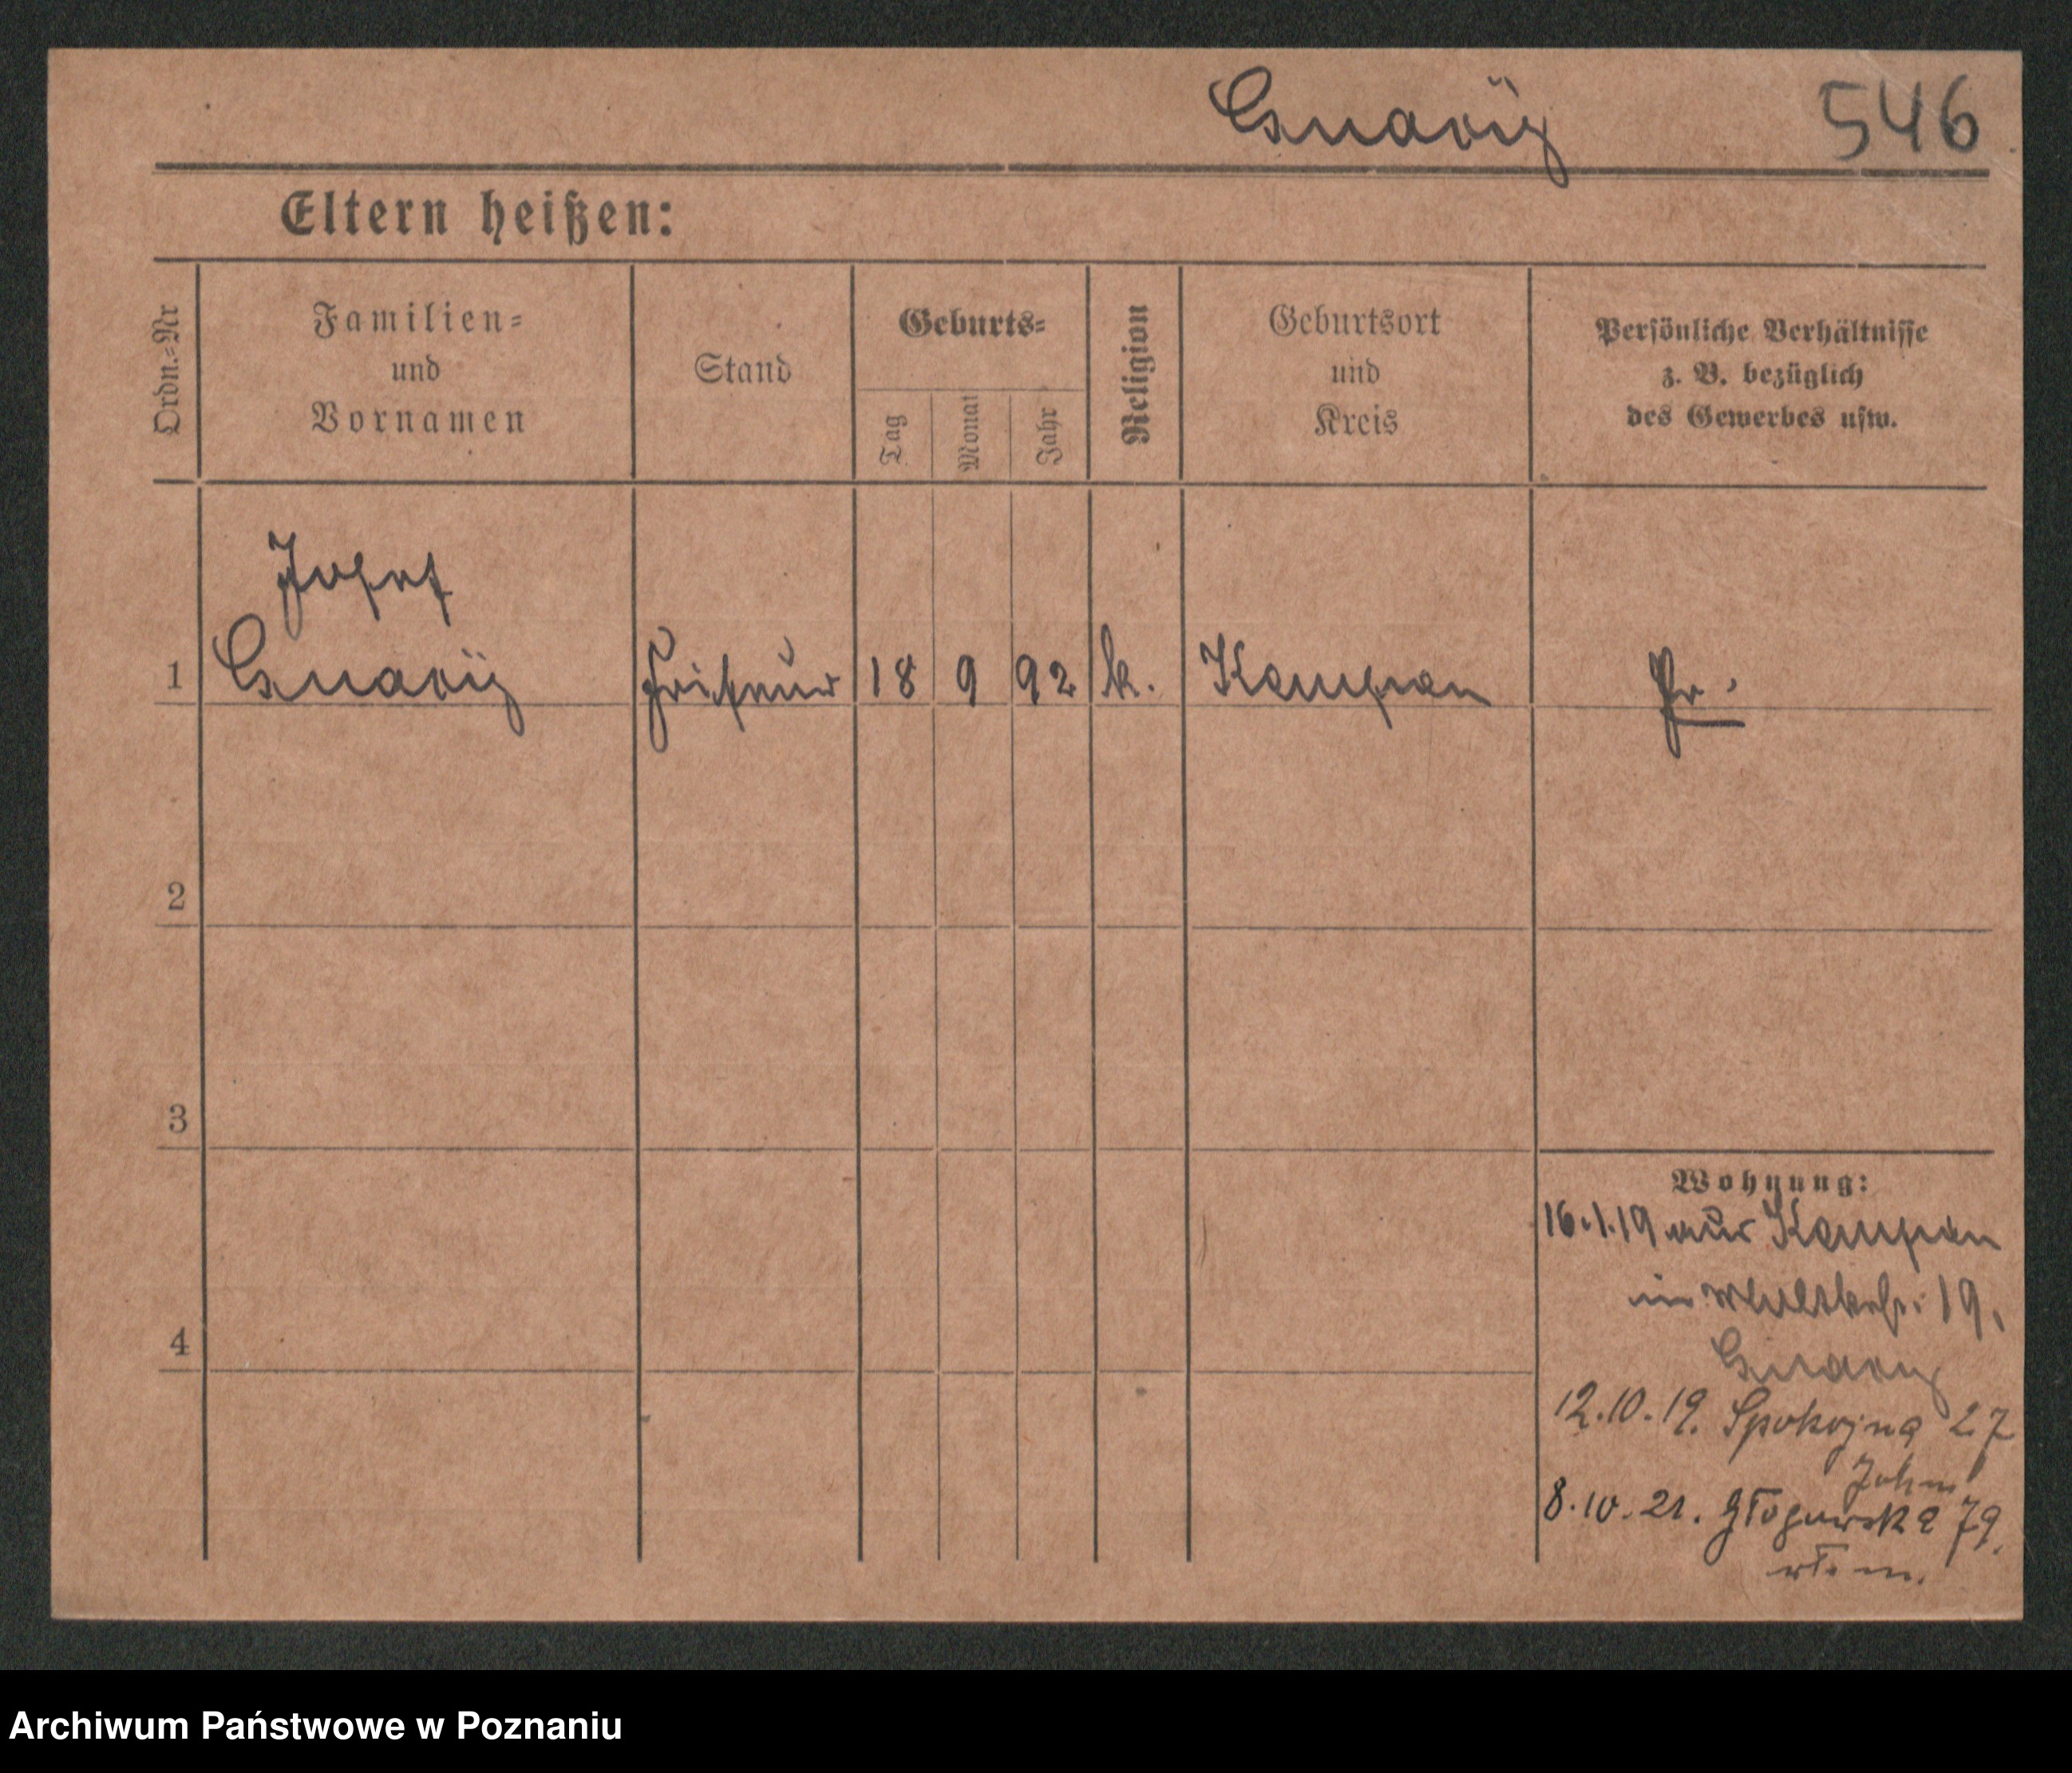 Gnaviz 546
Eltern heißen:
Ordn.=Nr
Familien=
und
Vornamen
Stand
Geburts=
Tag
Monat
Jahr
Religion
Geburtsort
und
Kreis
Persönliche Verhältnisse
z. B. bezüglich
des Gewerbes usw.
Josef
1 Gnaviz Friseur 18 9 92 k. Kempen Pr.
2
3
Wohnung:
16.1.19 aus Kempen
19.
4
12.10.19. Spokojna 27
8.10.21. Głogowska 79.
Archiwum Państwowe w Poznaniu